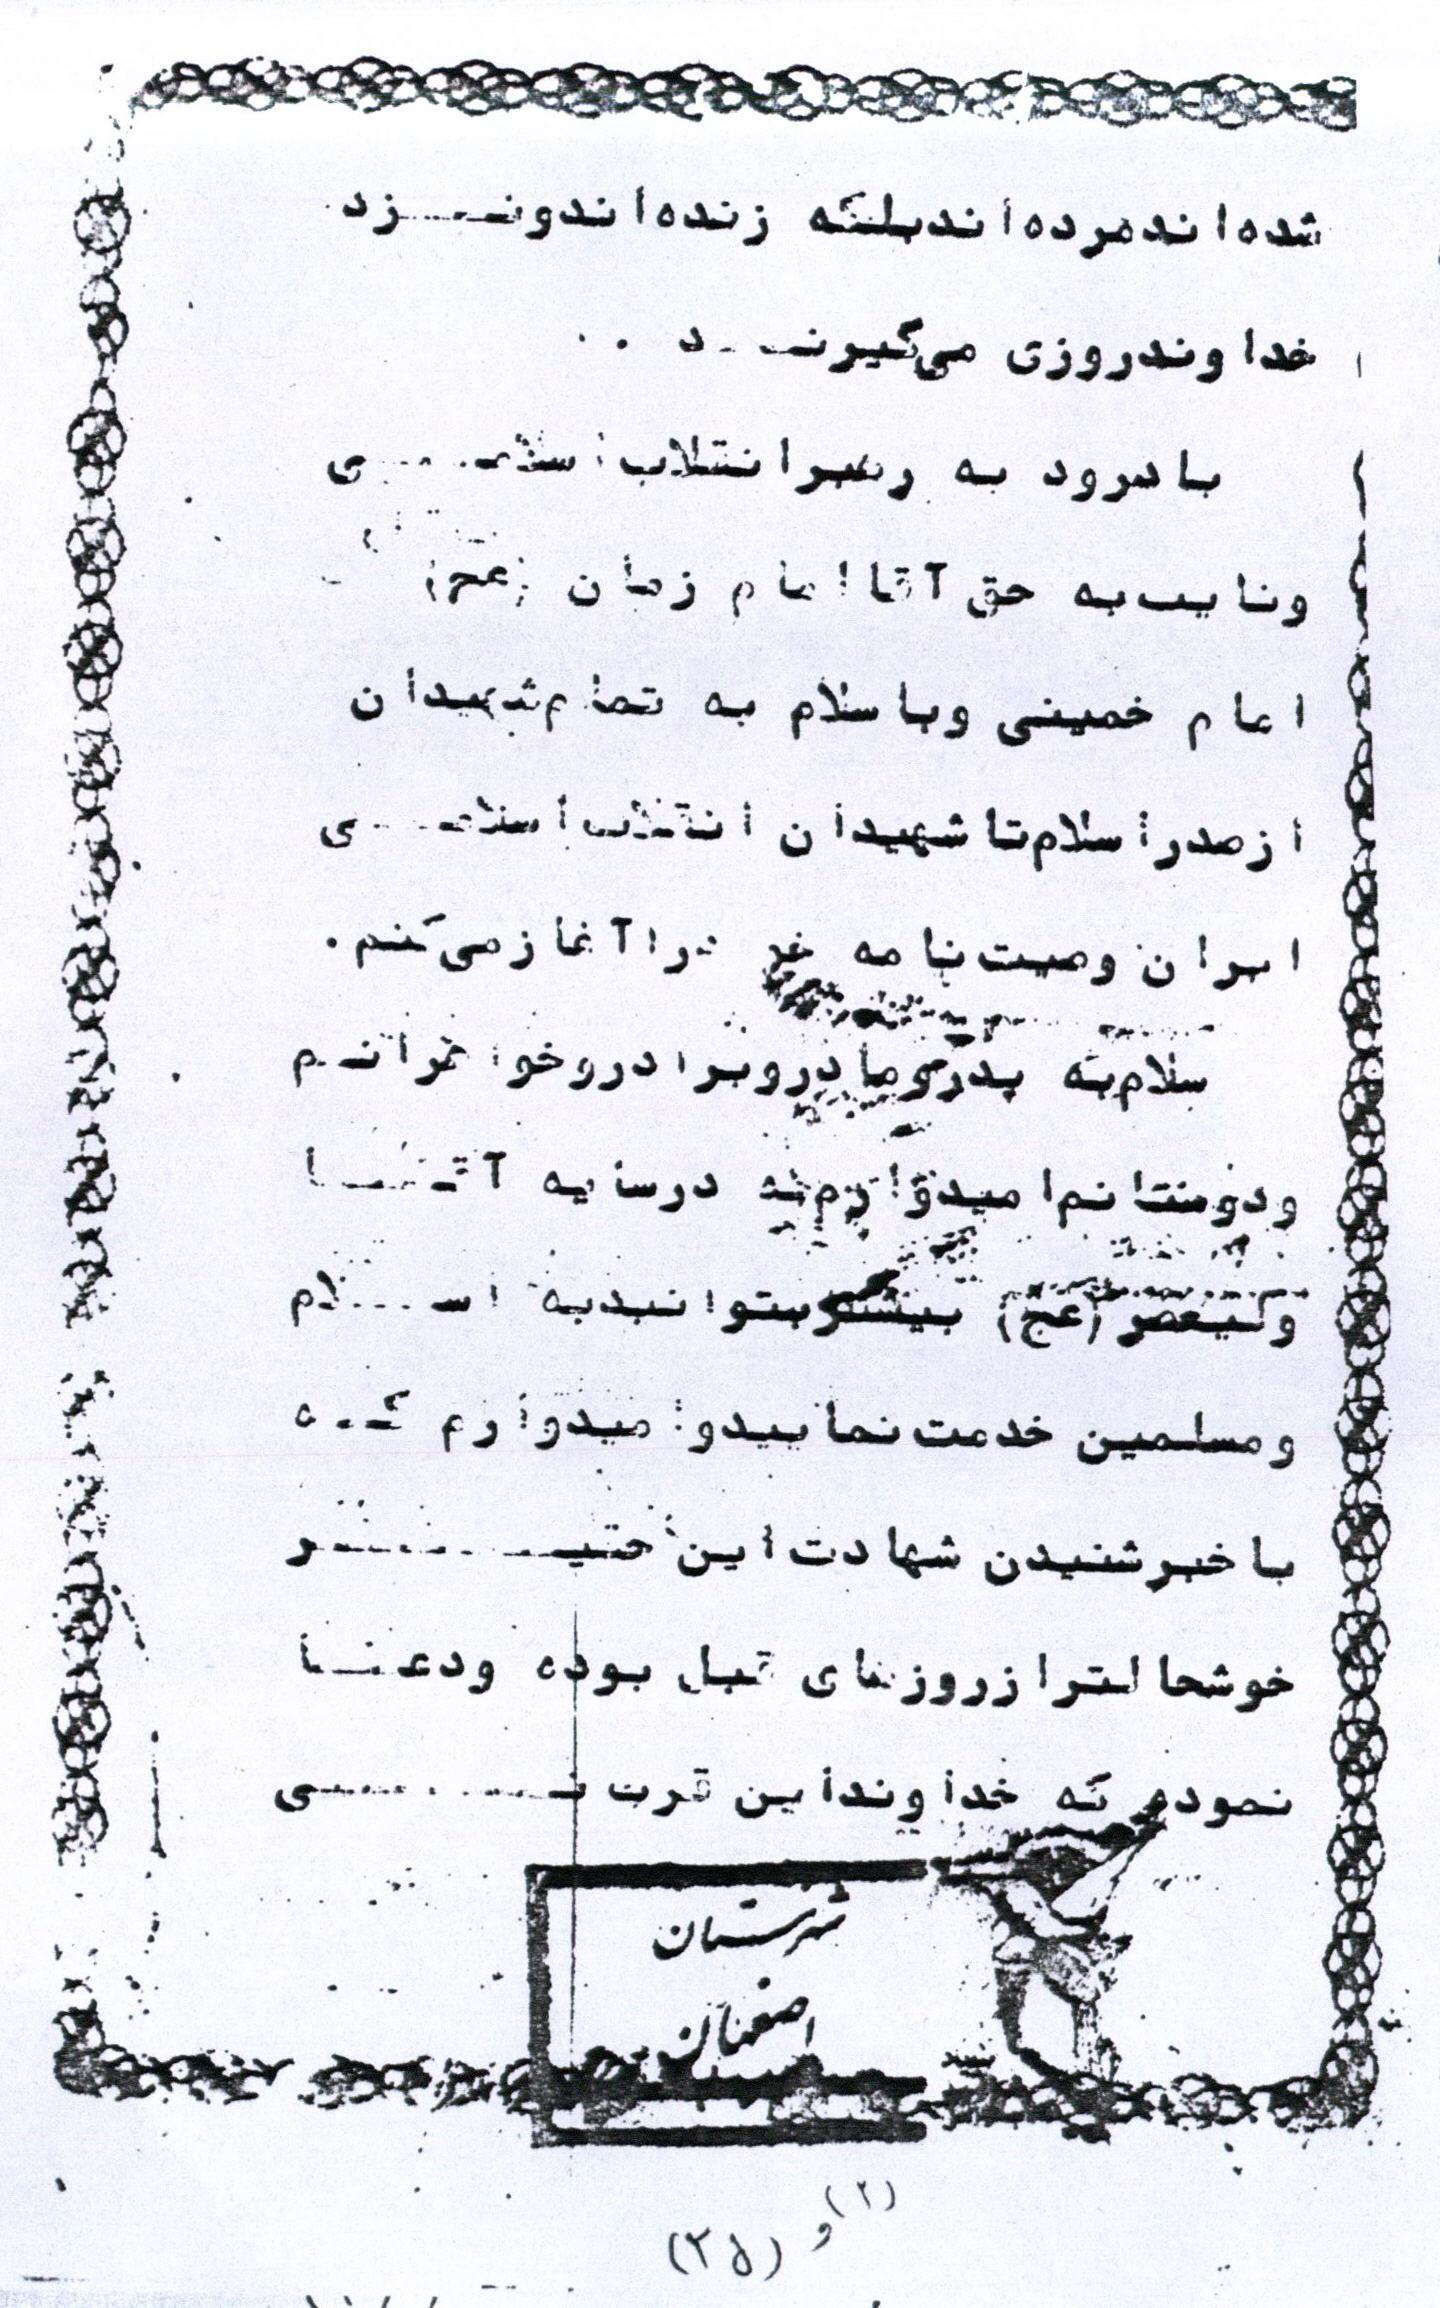 شده‌اند مرده‌اند بلکه زنده‌اند و نزد
خداوند روزی می‌گیرند ..
با درود به رهبر انقلاب اسلامی
و نایب به حق آقا امام زمان (عج)
امام خمینی و با سلام به تمام شهیدان
از صدر اسلام تا شهیدان انقلاب اسلامی
ایران وصیت نامه خود را آغاز می‌کنم.
سلام به پدر و مادر و برادر و خواهرانم
و دوستانم امیدوارم که در سایه آقا
ولیعصر (عج) بیشتر بتوانید به اسلام
و مسلمین خدمت نمایید و امیدوارم که
با خبر شنیدن شهادت این حقیر
خوشحالتر از روزهای قبل بوده و دعا
نموده که خداوند این قربانی
شهرستان
اصفهان
(۲)
و
(۲۵)